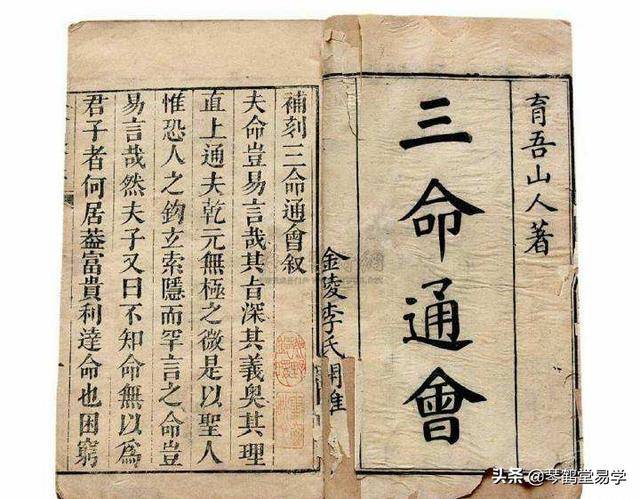 育吾山人著
三命通會
金陵李氏
補刻三命通會叙
夫命豈易言哉其旨深其義奥其理
直上通夫乾元無極之微是以聖人
惟恐人之鈎立索隱而罕言之命豈
易言哉然夫子又曰不知命無以爲
君子者何居葢富貴利達命也困窮
头条 @琴鹤堂易学